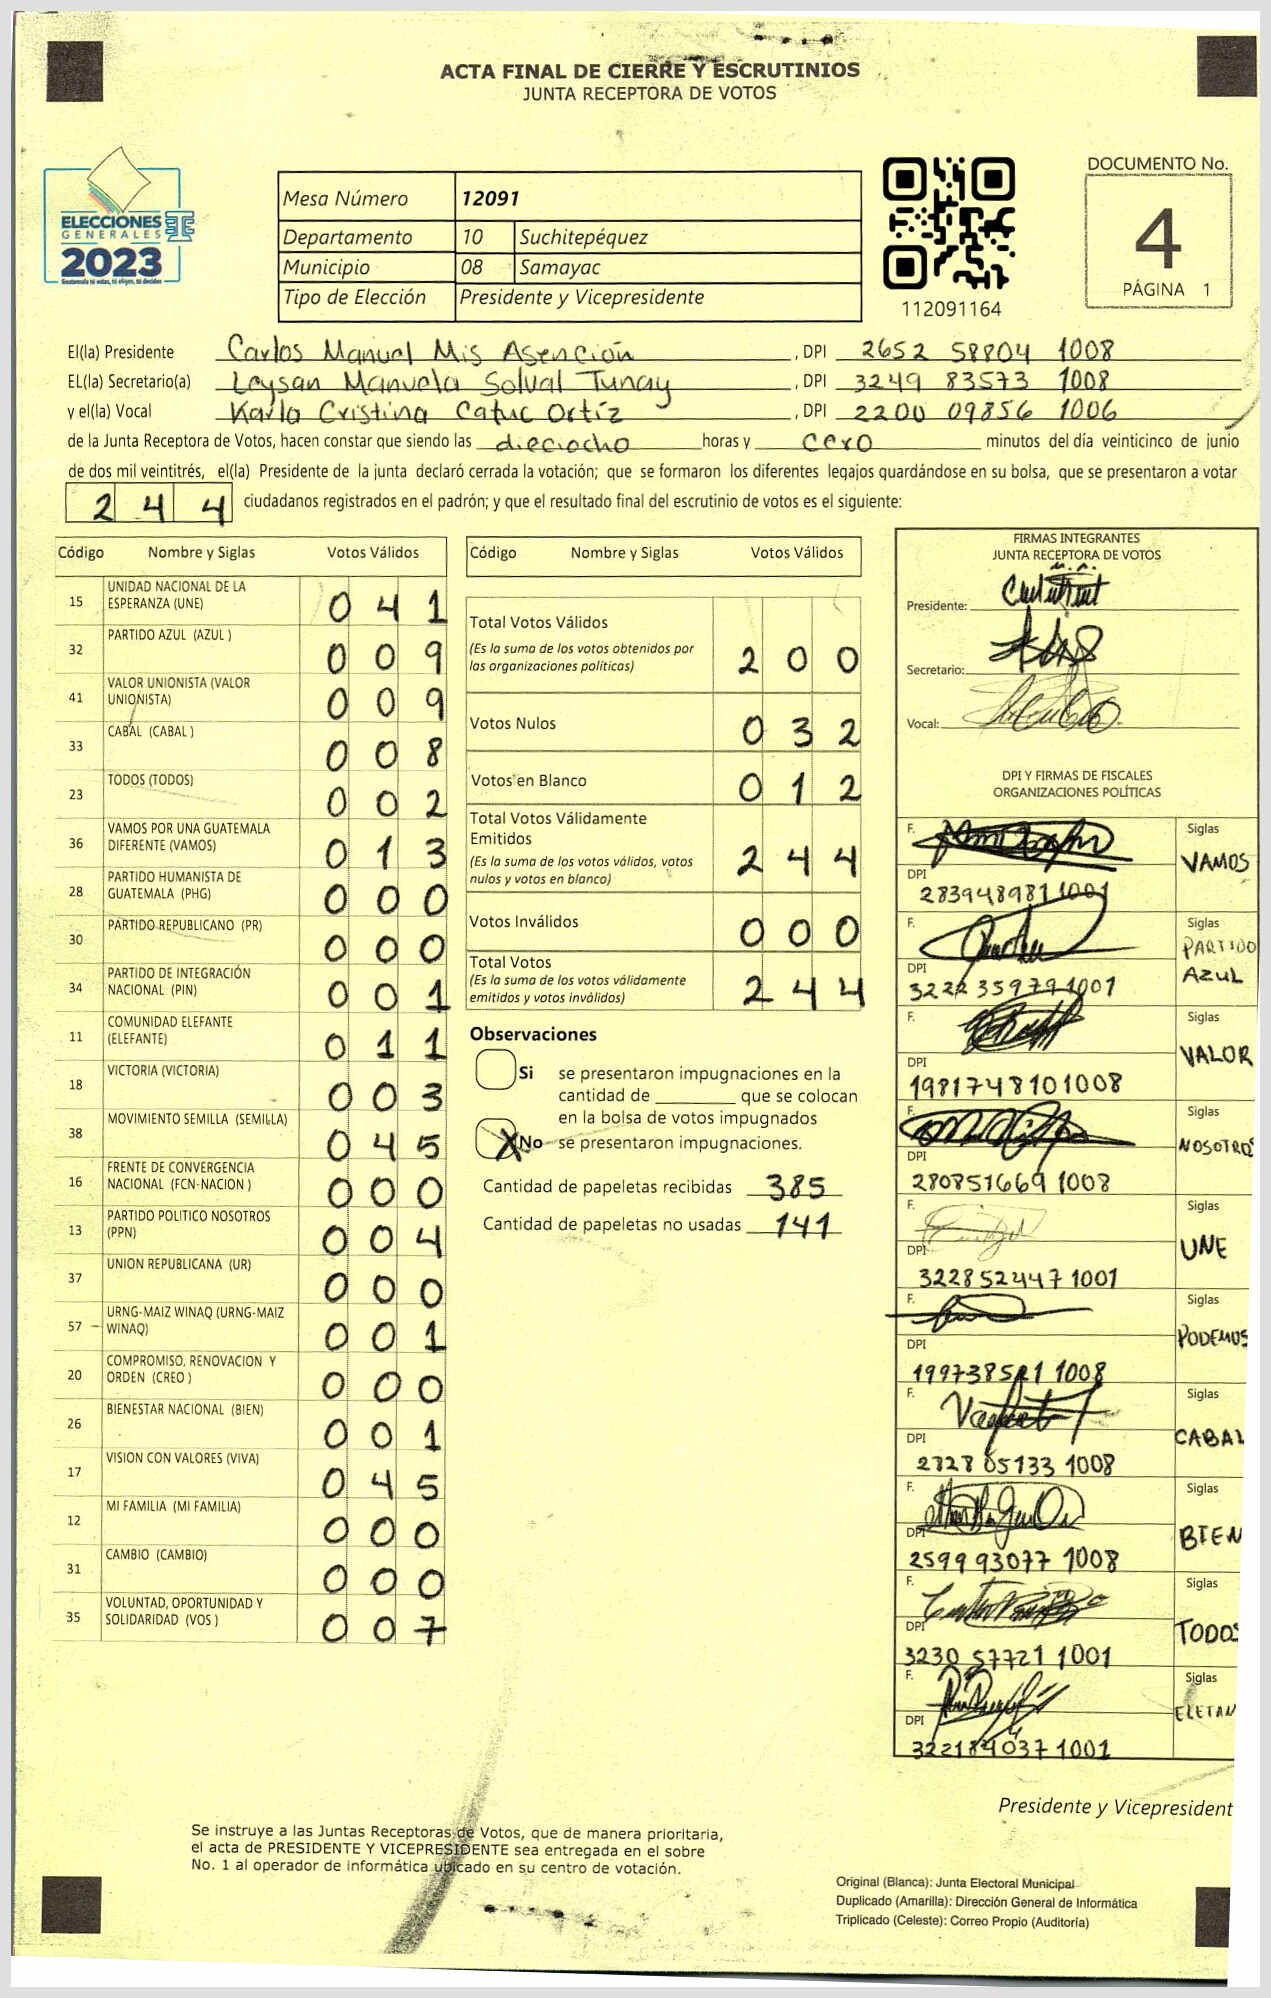 ACTA FINAL DE CIERRE Y ESCRUTINIOS
JUNTA RECEPTORA DE VOTOS
ELECCIONES
GENERALES
2023
Guatemala tú votas, tú eliges, tú decides
Mesa Número 12091
Departamento 10 Suchitepéquez
Municipio 08 Samayac
Tipo de Elección Presidente y Vicepresidente
112091164
DOCUMENTO No.
4
PÁGINA 1
El(la) Presidente Carlos Manuel Mis Asención, DPI 2652 58804 1008
EL(la) Secretario(a) Leysan Manuela Solval Tunay, DPI 3249 83573 1008
y el(la) Vocal Karla Cristina Catuc Ortíz, DPI 2200 09856 1006
de la Junta Receptora de Votos, hacen constar que siendo las dieciocho horas y cero minutos del día veinticinco de junio
de dos mil veintitrés, el(la) Presidente de la junta declaró cerrada la votación; que se formaron los diferentes legajos quardándose en su bolsa, que se presentaron a votar
244 ciudadanos registrados en el padrón; y que el resultado final del escrutinio de votos es el siguiente:
Código Nombre y Siglas Votos Válidos
15 UNIDAD NACIONAL DE LA ESPERANZA (UNE) 041
32 PARTIDO AZUL (AZUL ) 009
41 VALOR UNIONISTA (VALOR UNIONISTA) 009
33 CABAL (CABAL ) 008
23 TODOS (TODOS) 002
36 VAMOS POR UNA GUATEMALA DIFERENTE (VAMOS) 013
28 PARTIDO HUMANISTA DE GUATEMALA (PHG) 000
30 PARTIDO REPUBLICANO (PR) 000
34 PARTIDO DE INTEGRACIÓN NACIONAL (PIN) 001
11 COMUNIDAD ELEFANTE (ELEFANTE) 011
18 VICTORIA (VICTORIA) 003
38 MOVIMIENTO SEMILLA (SEMILLA) 045
16 FRENTE DE CONVERGENCIA NACIONAL (FCN-NACION ) 000
13 PARTIDO POLITICO NOSOTROS (PPN) 004
37 UNION REPUBLICANA (UR) 000
57 URNG-MAIZ WINAQ (URNG-MAIZ WINAQ) 001
20 COMPROMISO, RENOVACION Y ORDEN (CREO ) 000
26 BIENESTAR NACIONAL (BIEN) 001
17 VISION CON VALORES (VIVA) 045
12 MI FAMILIA (MI FAMILIA) 000
31 CAMBIO (CAMBIO) 000
35 VOLUNTAD, OPORTUNIDAD Y SOLIDARIDAD (VOS ) 007
Código Nombre y Siglas Votos Válidos
Total Votos Válidos
(Es la suma de los votos obtenidos por
las organizaciones políticas) 200
Votos Nulos 032
Votos en Blanco 012
Total Votos Válidamente
Emitidos
(Es la suma de los votos válidos, votos
nulos y votos en blanco) 244
Votos Inválidos 000
Total Votos
(Es la suma de los votos válidamente
emitidos y votos inválidos) 244
Observaciones
Si se presentaron impugnaciones en la
cantidad de ________ que se colocan
en la bolsa de votos impugnados
X No se presentaron impugnaciones.
Cantidad de papeletas recibidas 385
Cantidad de papeletas no usadas 141
FIRMAS INTEGRANTES
JUNTA RECEPTORA DE VOTOS
Presidente:
Secretario:
Vocal:
DPI Y FIRMAS DE FISCALES
ORGANIZACIONES POLÍTICAS
F. Siglas VAMOS
DPI 283948981 1001
F. Siglas PARTIDO AZUL
DPI 3222 35979 1001
F. Siglas VALOR
DPI 1981748101008
F. Siglas NOSOTROS
DPI 280851669 1008
F. Siglas UNE
DPI 322852447 1001
F. Siglas PODEMOS
DPI 199738521 1008
F. Siglas CABAL
DPI 2328 05133 1008
F. Siglas BIEN
DPI 2599 93077 1008
F. Siglas TODOS
DPI 3230 57721 1001
F. Siglas ELEFAN
DPI 322184037 1001
Presidente y Vicepresident
Se instruye a las Juntas Receptoras de Votos, que de manera prioritaria,
el acta de PRESIDENTE Y VICEPRESIDENTE sea entregada en el sobre
No. 1 al operador de informática ubicado en su centro de votación.
Original (Blanca): Junta Electoral Municipal
Duplicado (Amarilla): Dirección General de Informática
Triplicado (Celeste): Correo Propio (Auditoría)